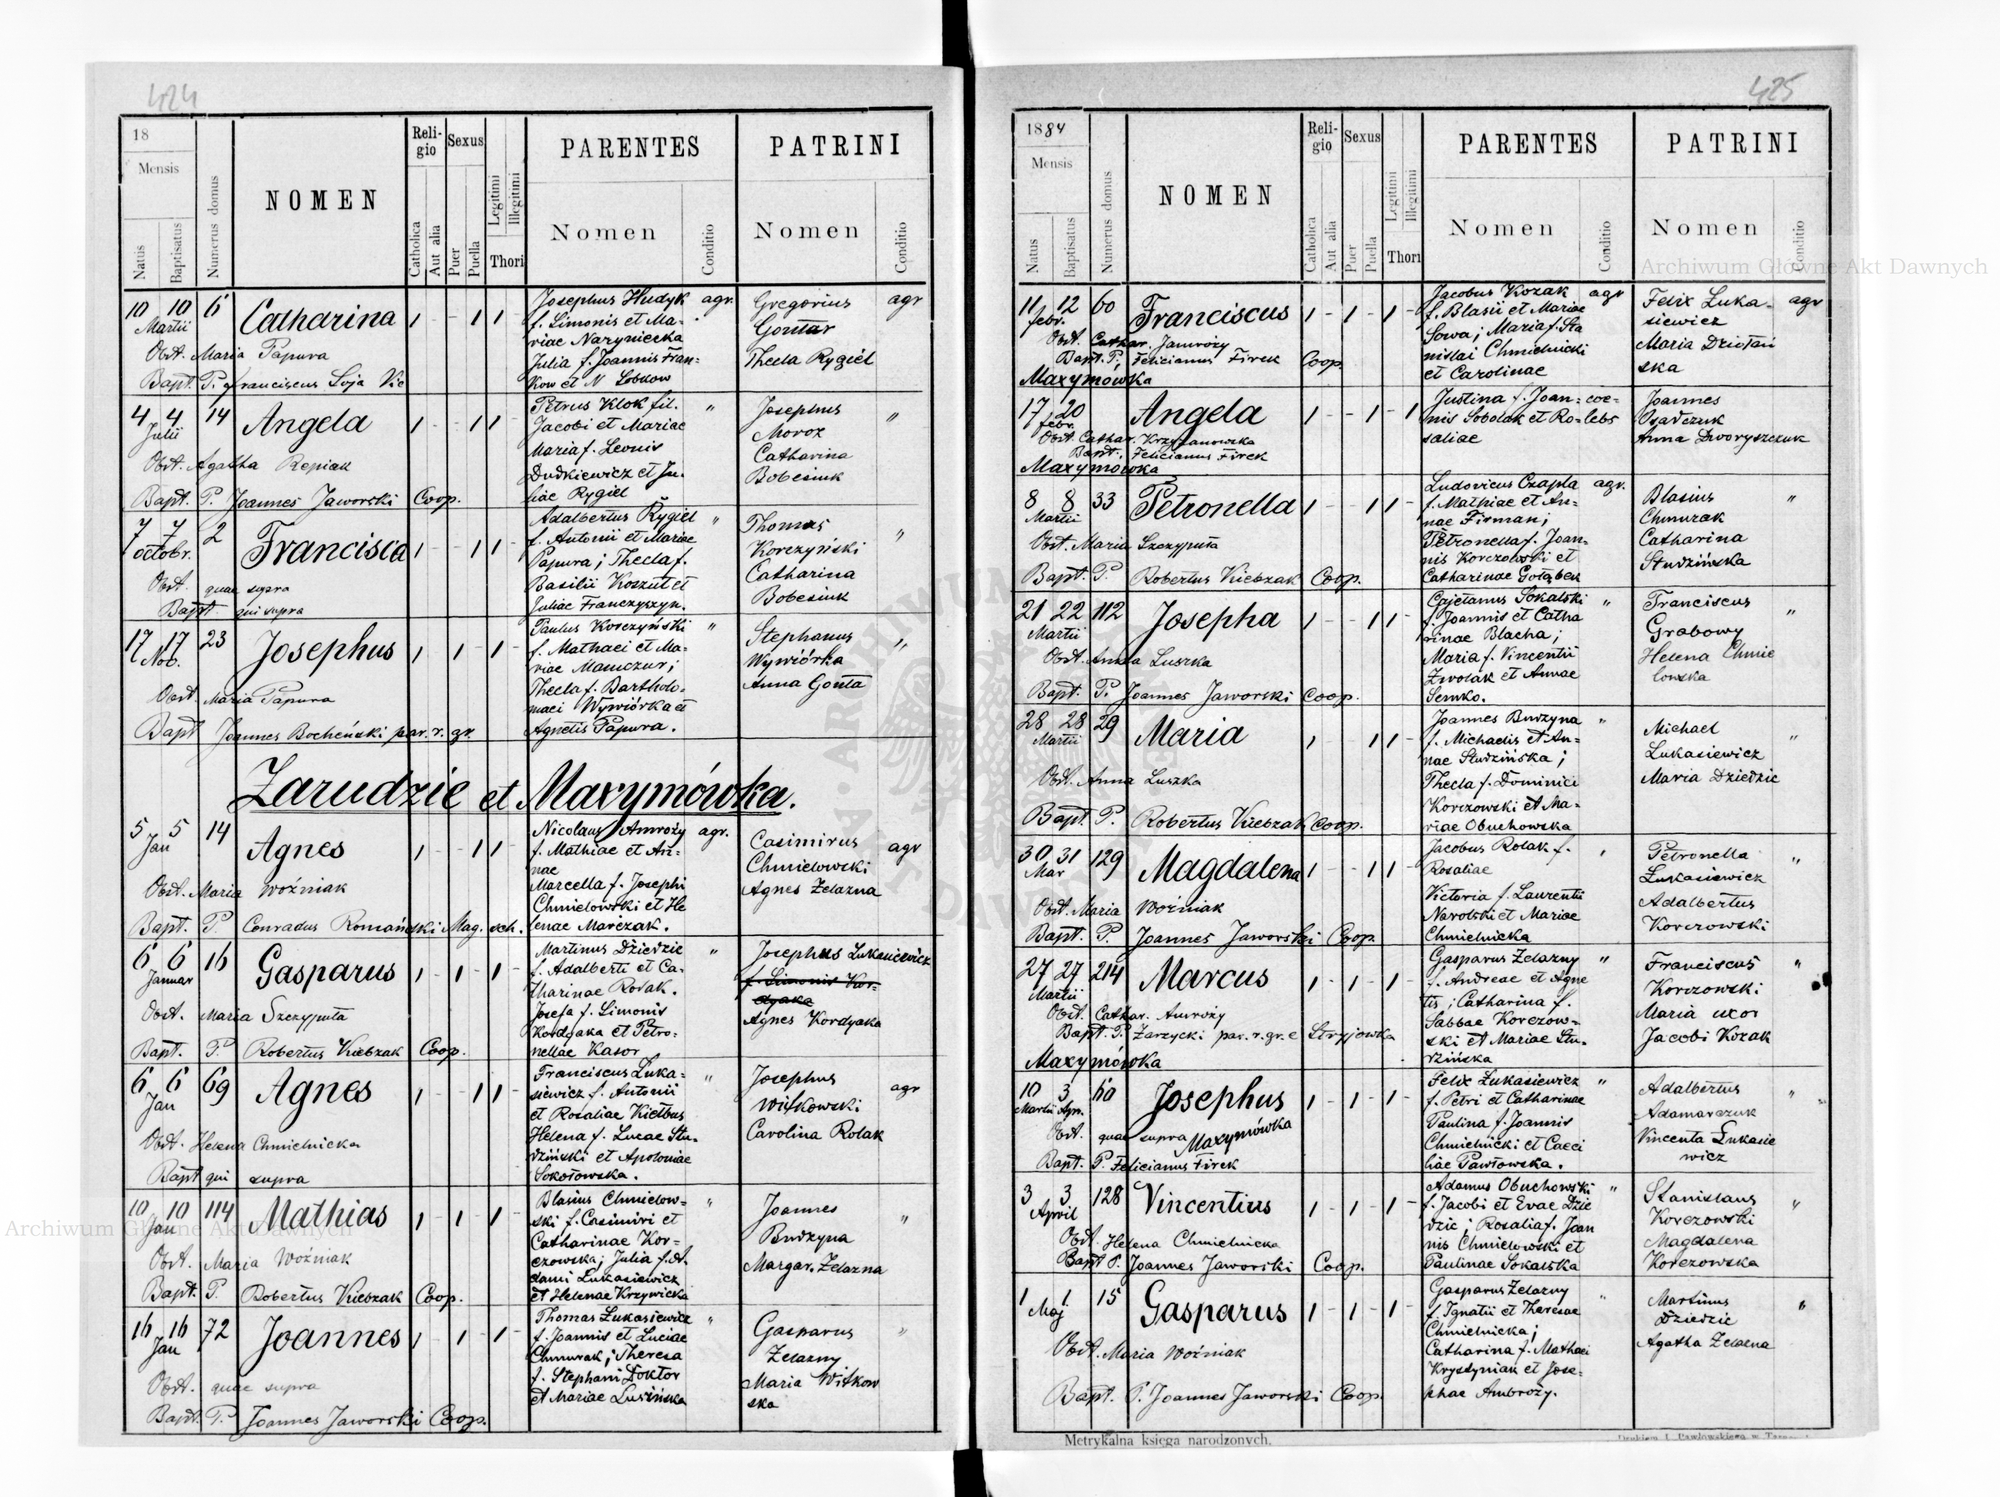 424
18
Mensis
Natus
Baptisatus
Numerus domus
NOMEN
Religio
Catholica
Aut alia
Sexus
Puer
Puella
Legitimi
Illegitimi
Thori
PARENTES
Nomen
Conditio
PATRINI
Nomen
Conditio
10 10 6 Catharina 1 - - 1 1 -
Martii
Obst. Maria Papura
Bapt. P. Franciscus Soja Vic
Josephus Hudyk agr.
f. Simonis et Ma-
riae Narzniecka
Julia f. Joannis Fran-
kow et N Lobkow
Gregorius agr
Gontar
Thecla Rygiel
4 4 14 Angela 1 - - 1 1 -
Julii
Obst. Agatha Repiak
Bapt. P. Joannes Jaworski Coop.
Petrus Klok fil. "
Jacobi et Mariae
Maria f. Leonis
Dudkiewicz et Ju-
liae Rygiel
Josephus "
Moroz
Catharina
Bobesiuk
7 7 2 Francisca 1 - - 1 1 -
octobr.
Obst. quae supra
Bapt qui supra
Adalbertus Rygiel "
f. Antonii et Mariae
Papura; Thecla f.
Basilii Koszut et
Juliae Franczyszyn.
Thomas "
Korczyński
Catharina
Bobesiuk
17 17 23 Josephus 1 - 1 - 1 -
Nob.
Obst Maria Papura
Bapt Joannes Bocheński par. r. gr.
Paulus Korczyński "
f. Mathaei et Ma-
riae Mamczur;
Thecla f. Bartholo-
maei Wywiórka et
Agnetis Papura.
Stephanus "
Wywiórka
Anna Gonta
Zarudzie et Maxymówka.
5 5 14 Agnes 1 - - 1 1 -
Jan
Obst. Maria Woźniak
Bapt. P. Conradus Romański Mag. sch.
Nicolaus Amroży agr.
f. Mathiae et An-
nae
Marcella f. Josephi
Chmielowski et He
lenae Marczak.
Casimirus agr
Chmielowski
Agnes Żelazna
6 6 16 Gasparus 1 - 1 - 1 -
Januar
Obst. Maria Szczyputa
Bapt. P. Robertus Kiebzak Coop.
Martinus Dziedzic "
f. Adalberti et Ca-
tharinae Rolak.
Josefa f. Simonis
Kordyaka et Petro-
nellae Kasor
Josephus Lukasiewicz
f. Simonis Kor-
dyaka
Agnes Kordyaka
6 6 69 Agnes 1 - - 1 1 -
Jan
Obst. Helena Chmielnicka
Bapt qui supra
Franciscus Luka- "
siewicz f. Antonii
et Rosaliae Kiełbus
Helena f. Lucae Stu-
dziński et Apoloniae
Sokołowska.
Josephus agr
Witkowski
Carolina Rolak
10 10 114 Mathias 1 - 1 - 1 -
Jan
Obst. Maria Woźniak
Bapt. P. Robertus Kiebzak Coop.
Blasius Chmielow- "
ski f. Casimiri et
Catharinae Kor-
czowska; Julia f. A-
dami Lukasiewicz
et Helenae Krzywicka
Joannes "
Budzyna
Margar. Żelazna
16 16 72 Joannes 1 - 1 - 1 -
Jan
Obst. quae supra
Bapt. P. Joannes Jaworski Coop.
Thomas Łukasiewicz "
f. Joannis et Luciae
Chmurak; Theresa
f. Stephani Doktor
et Mariae Lusińska
Gasparus "
Żelazny
Maria Witkow
ska
425
1884
Mensis
Natus
Baptisatus
Numerus domus
NOMEN
Religio
Catholica
Aut alia
Sexus
Puer
Puella
Legitimi
Illegitimi
Thori
PARENTES
Nomen
Conditio
PATRINI
Nomen
Conditio
11 12 60 Franciscus 1 - 1 - 1 -
febr.
Obst. Cathar. Jamroży
Bapt. P. Felicianus Firek Coop.
Maxymówka
Jacobus Kozak agr
f. Blasii et Mariae
Sowa; Maria f. Sta
nislai Chmielnicki
et Carolinae
Felix Luka- agr
siewicz
Maria Dziołań
ska
17 20 Angela 1 - - 1 - 1
febr.
Obst. Cathar. Krzyżanowska
Bapt. Felicianus Firek
Maxymówka
Justina f. Joan- coe-
nis Sobolak et Ro- lebs
saliae
Joannes
Osadczuk
Anna Dworyszczuk
8 8 33 Petronella 1 - - 1 1 -
Martii
Obst. Maria Szczyputa
Bapt. P. Robertus Kiebzak Coop.
Ludovicus Czapla agr.
f. Mathiae et An-
nae Firman;
Petronella f. Joan-
nis Korczowski et
Catharinae Gołąbek
Blasius "
Chmurak
Catharina
Studzińska
21 22 112 Josepha 1 - - 1 1 -
Martii
Obst. Anna Luszka
Bapt. P. Joannes Jaworski Coop.
Cajetanus Sokalski "
f. Joannis et Catha
rinae Blacha;
Maria f. Vincentii
Zwolak et Annae
Semko.
Franciscus "
Grabowy
Helena Chmie
lowska
28 28 29 Maria 1 - - 1 1 -
Martii
Obst. Anna Luszka
Bapt. P. Robertus Kiebzak Coop.
Joannes Budzyna "
f. Michaelis et An-
nae Studzińska;
Thecla f. Dominici
Korczowski et Ma-
riae Obuchowska
Michael "
Lukasiewicz
Maria Dziedzic
30 31 129 Magdalena 1 - - 1 1 -
Mar
Obst. Maria Woźniak
Bapt. P. Joannes Jaworski Coop.
Jacobus Rolak f. "
Rosaliae
Victoria f. Laurentii
Narolski et Mariae
Chmielnicka
Petronella "
Łukasiewicz
Adalbertus
Korczowski
27 27 214 Marcus 1 - 1 - 1 -
Martii
Obst. Cathar. Amroży
Bapt. P. Zarzycki par. r. gr. e Stryjowka
Maxymówka
Gasparus Żelazny "
f. Andreae et Agne
tis; Catharina f.
Sabbae Korczow-
ski et Mariae Stu-
dzińska
Franciscus "
Korczowski
Maria uxor
Jacobi Kozak
10 3 60 Josephus 1 - 1 - 1 -
Martii Apr.
Obst. quae supra Maxymówka
Bapt. P. Felicianus Firek
Felix Łukasiewicz "
f. Petri et Catharinae
Paulina f. Joannis
Chmielnicki et Caeci
liae Pawłowska.
Adalbertus "
Adamarczuk
Vincenta Łukasie
wicz
3 3 128 Vincentius 1 - 1 - 1 -
April
Obst. Helena Chmielnicka
Bapt P. Joannes Jaworski Coop.
Adamus Obuchowski "
f. Jacobi et Evae Dzie
dzic; Rosalia f. Joan
nis Chmielowski et
Paulinae Sokalska
Stanislaus "
Korczowski
Magdalena
Korczowska
1 1 15 Gasparus 1 - 1 - 1 -
Maj
Obst. Maria Woźniak
Bapt. P. Joannes Jaworski Coop.
Gasparus Żelazny "
f. Ignatii et Theresae
Chmielnicka;
Catharina f. Mathaei
Krysdyniak et Jose-
phae Ambroży.
Martinus "
Dziedzic
Agatha Żelazna
Metrykalna księga narodzonych.
Archiwum Główne Akt Dawnych
Archiwum Główne Akt Dawnych